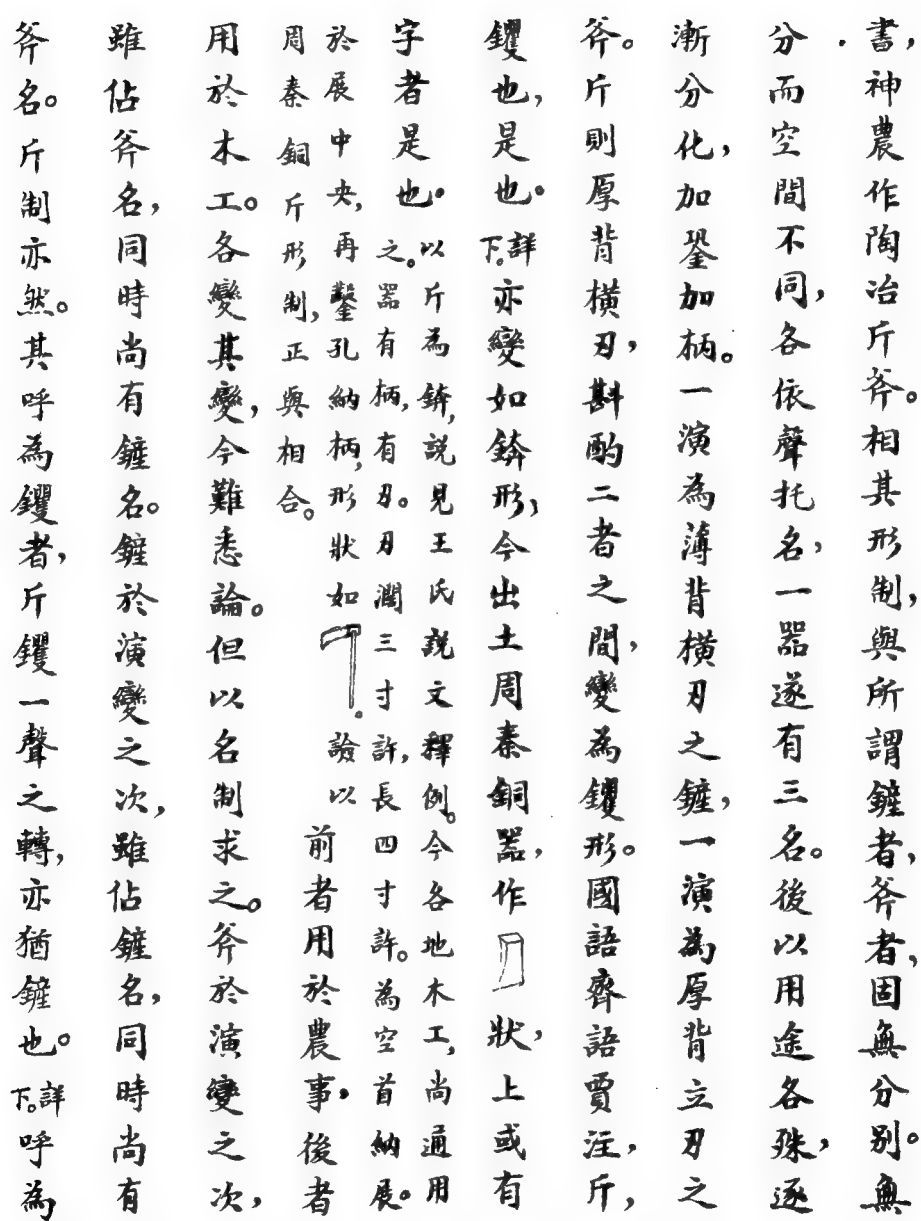 書,神農作陶冶斤斧。相其形制,與所謂鏟者,斧者,固無分別。無
分而空間不同,各依聲托名,一器遂有三名。後以用途各殊,逐
漸分化,加銎加柄。一演為薄背橫刃之鏟,一演為厚背立刃之
斧。斤則厚背橫刃,斟酌二者之間,變為钁形。國語齊語賈注,斤,
钁也,是也。詳下。亦變如錛形,今出土周秦銅器,作狀,上或有
字者是也。以斤為錛,說見王氏說文釋例。今各地木工,尚通用
之。器有柄,有刃。刃濶三寸許,長四寸許。為空首納展。
於展中央,再鑿孔納柄,形狀如。驗以
周秦銅斤形制,正與相合。前者用於農事,後者
用於木工。各變其變,今難悉論。但以名制求之。斧於演變之次,
雖佔斧名,同時尚有鏟名。鏟於演變之次,雖佔鏟名,同時尚有
斧名。斤制亦然。其呼為钁者,斤钁一聲之轉,亦猶鏟也。詳下。呼為